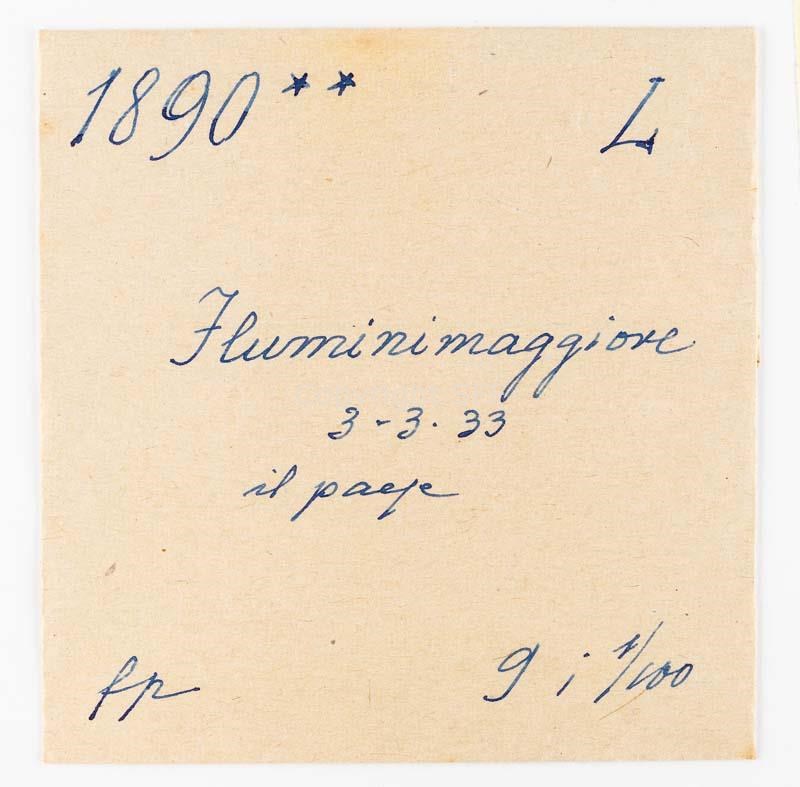 1890** L
Fluminimaggiore
3-3.33
il paese
fp 9 i 1/100